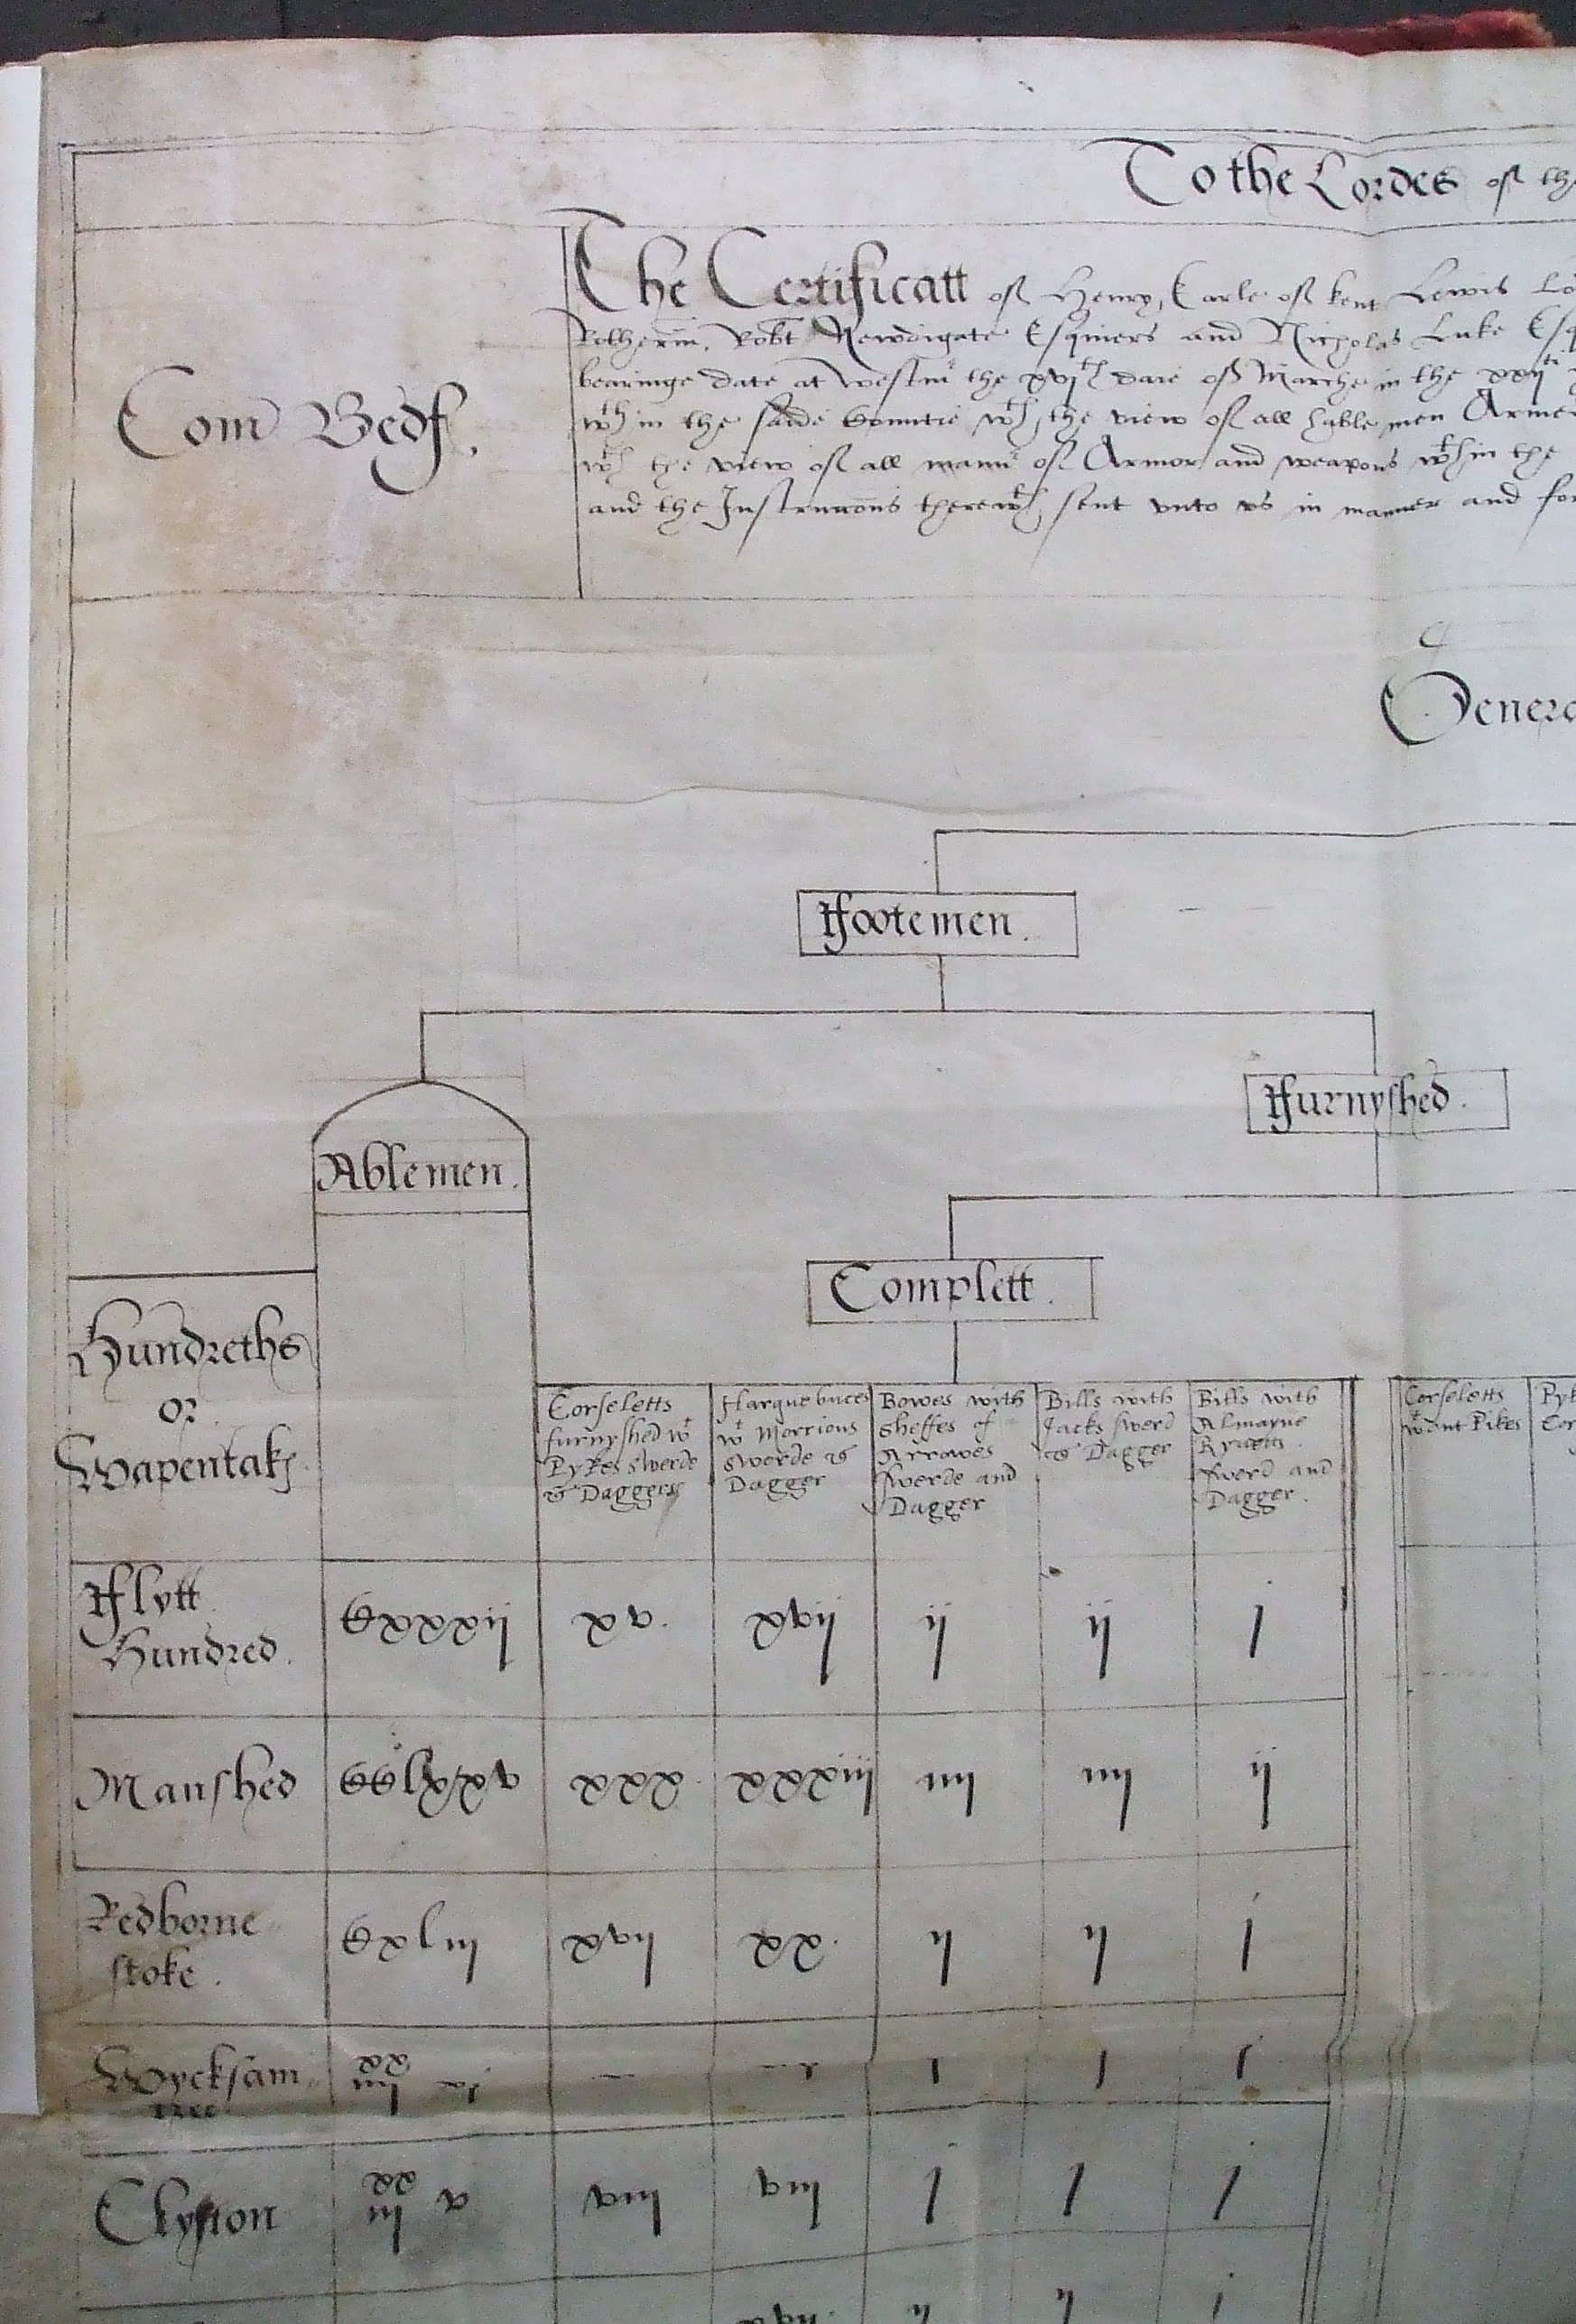 To the Lordes of the
The Certificatt of Henry, Earle of kent Lewis Lo
Rotherm, Robt Newdigate Esquiers and Nicholas Luke Esq
bearinge date at westmr the xvjth daie of Marche in the xxijti
wth in the saide Countie wth the view of all hable men Armor
wth the view of all mannr of Armor and weapons wthin the
and the Instruccons therewth sent vnto vs in manner and for
Com Bedf.
Genera
ffootemen.
ffurnyshed.
Ablemen.
Complett.
Hundreths
or
Wapentaks
Corseletts
furnyshed wt
Pykes swerde
& Daggers
Harquebuces
wt Morrions
swerde &
Dagger
Bowes with
Sheffes of
Arrowes
swerde and
Dagger
Bills with
Jacks swerd
& Dagger
Bills with
Almayne
Ryvetts
swerd and
Dagger.
Corseletts
wtout Pikes
Pyk
Cor
fflytt
Hundred.
Cxxxij
xv.
xvij
ij
ij
j
Manshed
CClxxxv
xxx.
xxxiij
iiij
iiij
ij
Redborne
stoke.
Cxliij
xvij
xx.
ij
ij
j
Wycksam
tree
xx
iiij xj
j
j
j
Clyfton
xx
iiij v
viij
viij
j
j
j
ij
ij
j